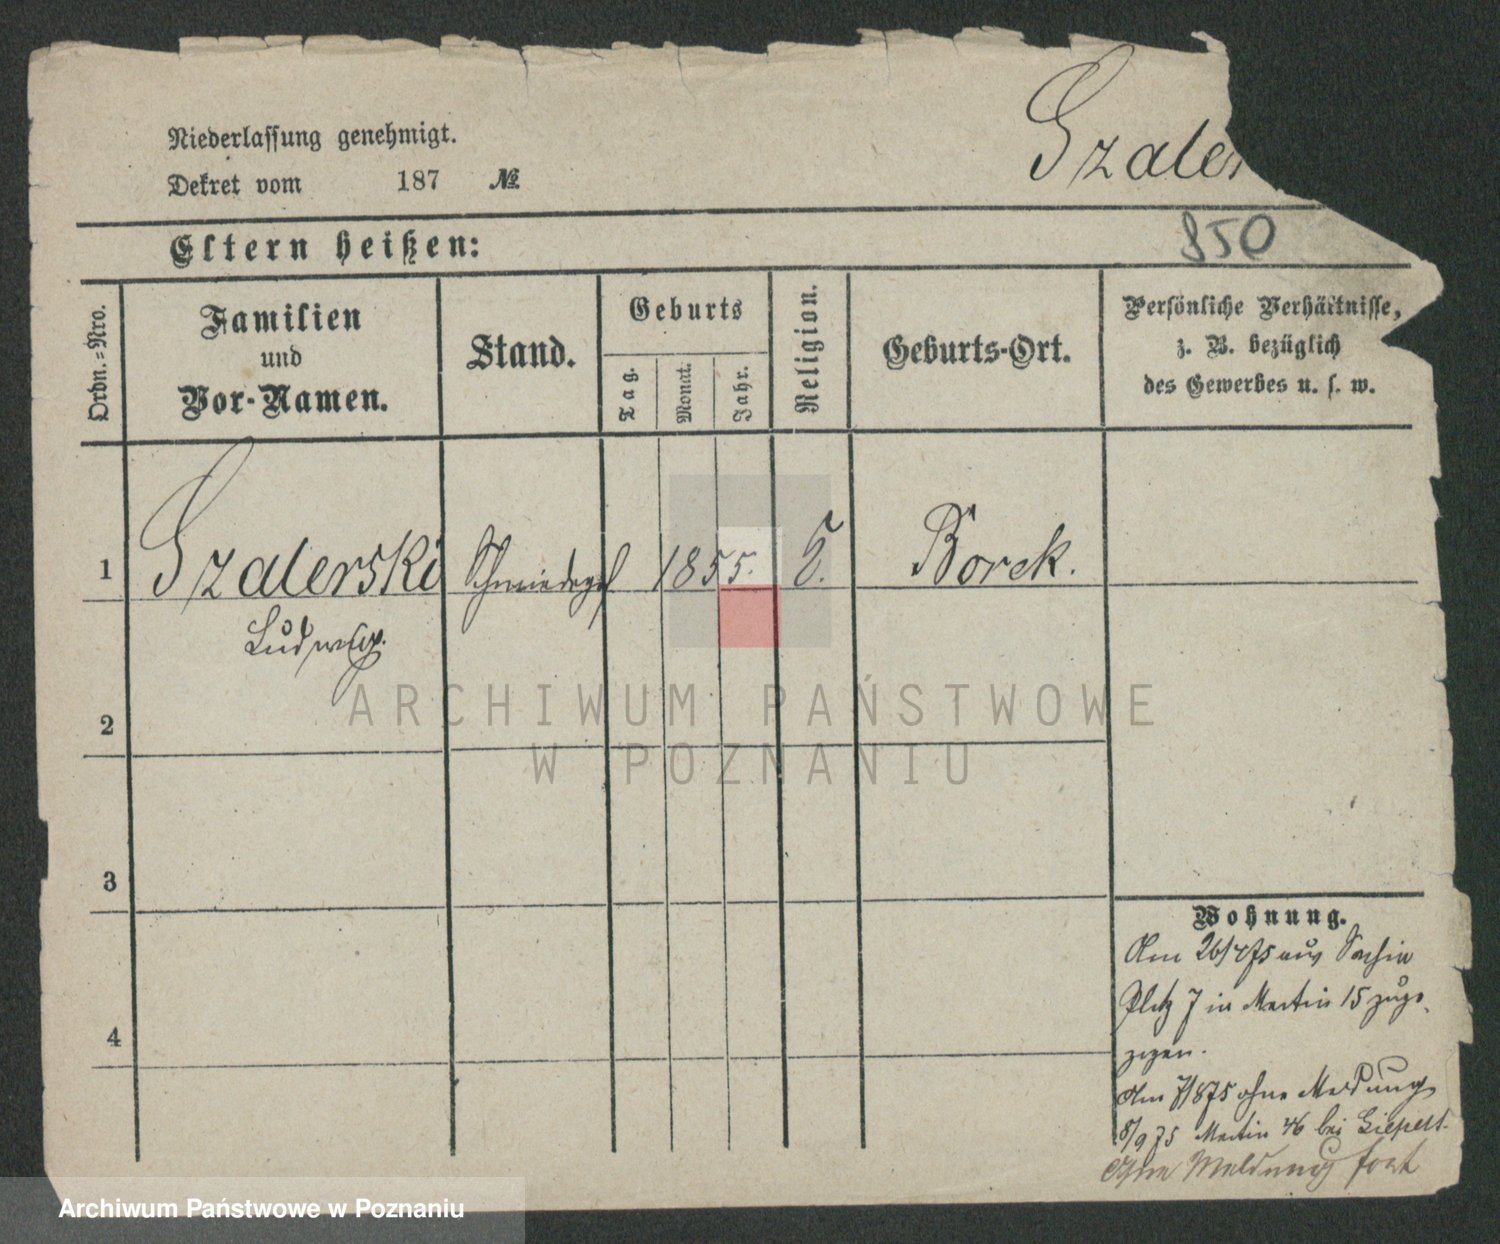 Niederlassung genehmigt.
Dekret vom 187 №
Szalers
850
Eltern heißen:
Ordn.=Nro.
Familien
und
Vor-Namen.
Stand.
Geburts
Tag.
Monat.
Jahr.
Religion.
Geburts-Ort.
Persönliche Verhältnisse,
z. B. bezüglich
des Gewerbes u. s. w.
1 Szalerski Schmiedeges 1855. Borek.
Ludwig.
2
3
4
Wohnung.
Am 26/4 75 aus
Platz 7 in Martin 15 zuge-
zogen.
Am 7/8 75 ohne Meldung
8/9 75 Martin 46 bei
Ohne Meldung fort
ARCHIWUM PAŃSTWOWE
W POZNANIU
Archiwum Państwowe w Poznaniu